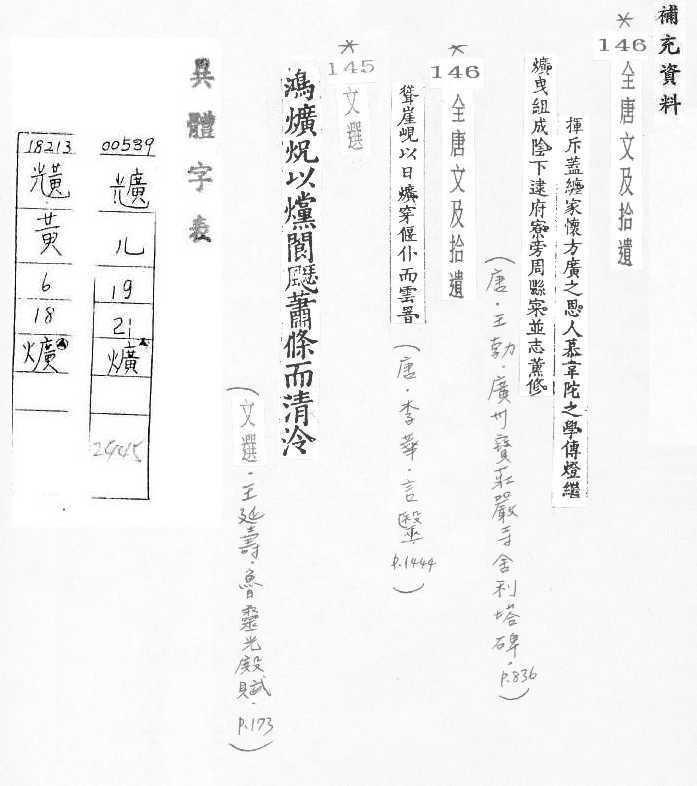 補充資料
*
146
全唐文及拾遺
揮斥蓋纏家懷方廣之恩人慕韋陀之學傳燈繼
爌曳組成陰下逮府寮旁周縣寀並志薰修
(唐.王勃.廣州寶莊嚴寺舍利塔碑.P.836)
*
146
全唐文及拾遺
聳崖峴以日爌穿偃仆而雲罯
(唐.李華.言毉.P.1444)
*
145
文選
鴻爌炾以爣閬飋蕭條而清泠
(文選.王延壽.魯靈光殿賦.P.173)
異體字表
00539
儿
19
21
爌
2445
18213
黃
6
18
爌